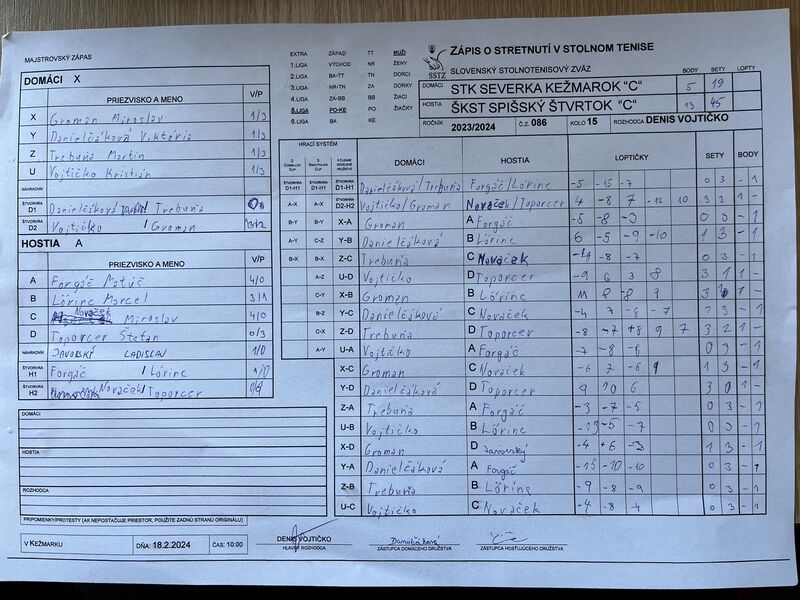 MAJSTROVSKÝ ZÁPAS
DOMÁCI X
PRIEZVISKO A MENO V/P
X Groman Miroslav 1/3
Y Danielčáková Viktória 1/3
Z Trebuňa Martin 1/3
U Vojtičko Kristián 1/3
NÁHRADNÍK
ŠTVORHRA D1 Danielčáková / Trebuňa
ŠTVORHRA D2 Vojtičko / Groman
HOSTIA A
PRIEZVISKO A MENO V/P
A Forgáč Matúš 4/0
B Lörinc Marcel 3/1
C Novaček Miroslav 4/0
D Toporcer Štefan 0/3
NÁHRADNÍK JAVORSKÝ LADISLAV 1/0
ŠTVORHRA H1 Forgáč / Lörinc 1/0
ŠTVORHRA H2 Novaček/Toporcer
DOMÁCI
HOSTIA
ROZHODCA
PRIPOMIENKY/PROTESTY (AK NEPOSTAČUJE PRIESTOR, POUŽITE ZADNÚ STRANU ORIGINÁLU)
V KEŽMARKU DŇA: 18.2.2024 ČAS: 10:00
EXTRA ZÁPAD TT MUŽI
1.LIGA VÝCHOD NR ŽENY
2.LIGA BA-TT TN DORCI
3.LIGA NR-TN ZA DORKY
4.LIGA ZA-BB BB ŽIACI
5.LIGA PO-KE PO ŽIAČKY
6.LIGA BA KE
SSTZ
ZÁPIS O STRETNUTÍ V STOLNOM TENISE
SLOVENSKÝ STOLNOTENISOVÝ ZVÄZ BODY SETY LOPTY
DOMÁCI STK SEVERKA KEŽMAROK "C" 5 19
HOSTIA ŠKST SPIŠSKÝ ŠTVRTOK "C" 13 45
ROČNÍK 2023/2024 Č.Z. 086 KOLO 15 ROZHODCA DENIS VOJTIČKO
HRACÍ SYSTÉM
DOMÁCI HOSTIA LOPTIČKY SETY BODY
ŠTVORHRA D1-H1 ŠTVORHRA D1-H1 ŠTVORHRA D1-H1 Danielčáková/Trebuňa Forgáč/Lörinc -5 -15 -7 0 3 - 1
A-X A-X ŠTVORHRA D2-H2 Vojtičko/Groman Novaček/Toporcer 4 -8 7 -12 10 3 2 1 -
B-Y B-Y X-A Groman A Forgáč -5 -8 -3 0 3 - 1
A-Y C-Z Y-B Danielčáková B Lörinc 6 -5 -9 -10 1 3 - 1
B-X B-X Z-C Trebuňa C Novaček -4 -8 -7 0 3 - 1
A-Z U-D Vojtičko D Toporcer -9 6 3 8 3 1 1 -
C-Y X-B Groman B Lörinc 11 8 -8 9 3 1 1 -
B-Z Y-C Danielčáková C Novaček -4 7 -8 -7 1 3 - 1
C-X Z-D Trebuňa D Toporcer -8 -7 +8 9 7 3 2 1 -
A-Y U-A Vojtičko A Forgáč -7 -8 -6 0 3 - 1
X-C Groman C Novaček -6 7 -6 9 1 3 - 1
Y-D Danielčáková D Toporcer 9 10 6 3 0 1 -
Z-A Trebuňa A Forgáč -3 -7 -5 0 3 - 1
U-B Vojtičko B Lörinc -13 -5 -7 0 3 - 1
X-D Groman D Javorský -4 +6 -3 1 3 - 1
Y-A Danielčáková A Forgáč -15 -10 -10 0 3 - 1
Z-B Trebuňa B Lörinc -9 -8 -9 0 3 - 1
U-C Vojtičko C Novaček -4 -8 -4 0 3 - 1
DENIS VOJTIČKO
HLAVNÝ ROZHODCA ZÁSTUPCA DOMÁCEHO DRUŽSTVA ZÁSTUPCA HOSŤUJÚCEHO DRUŽSTVA